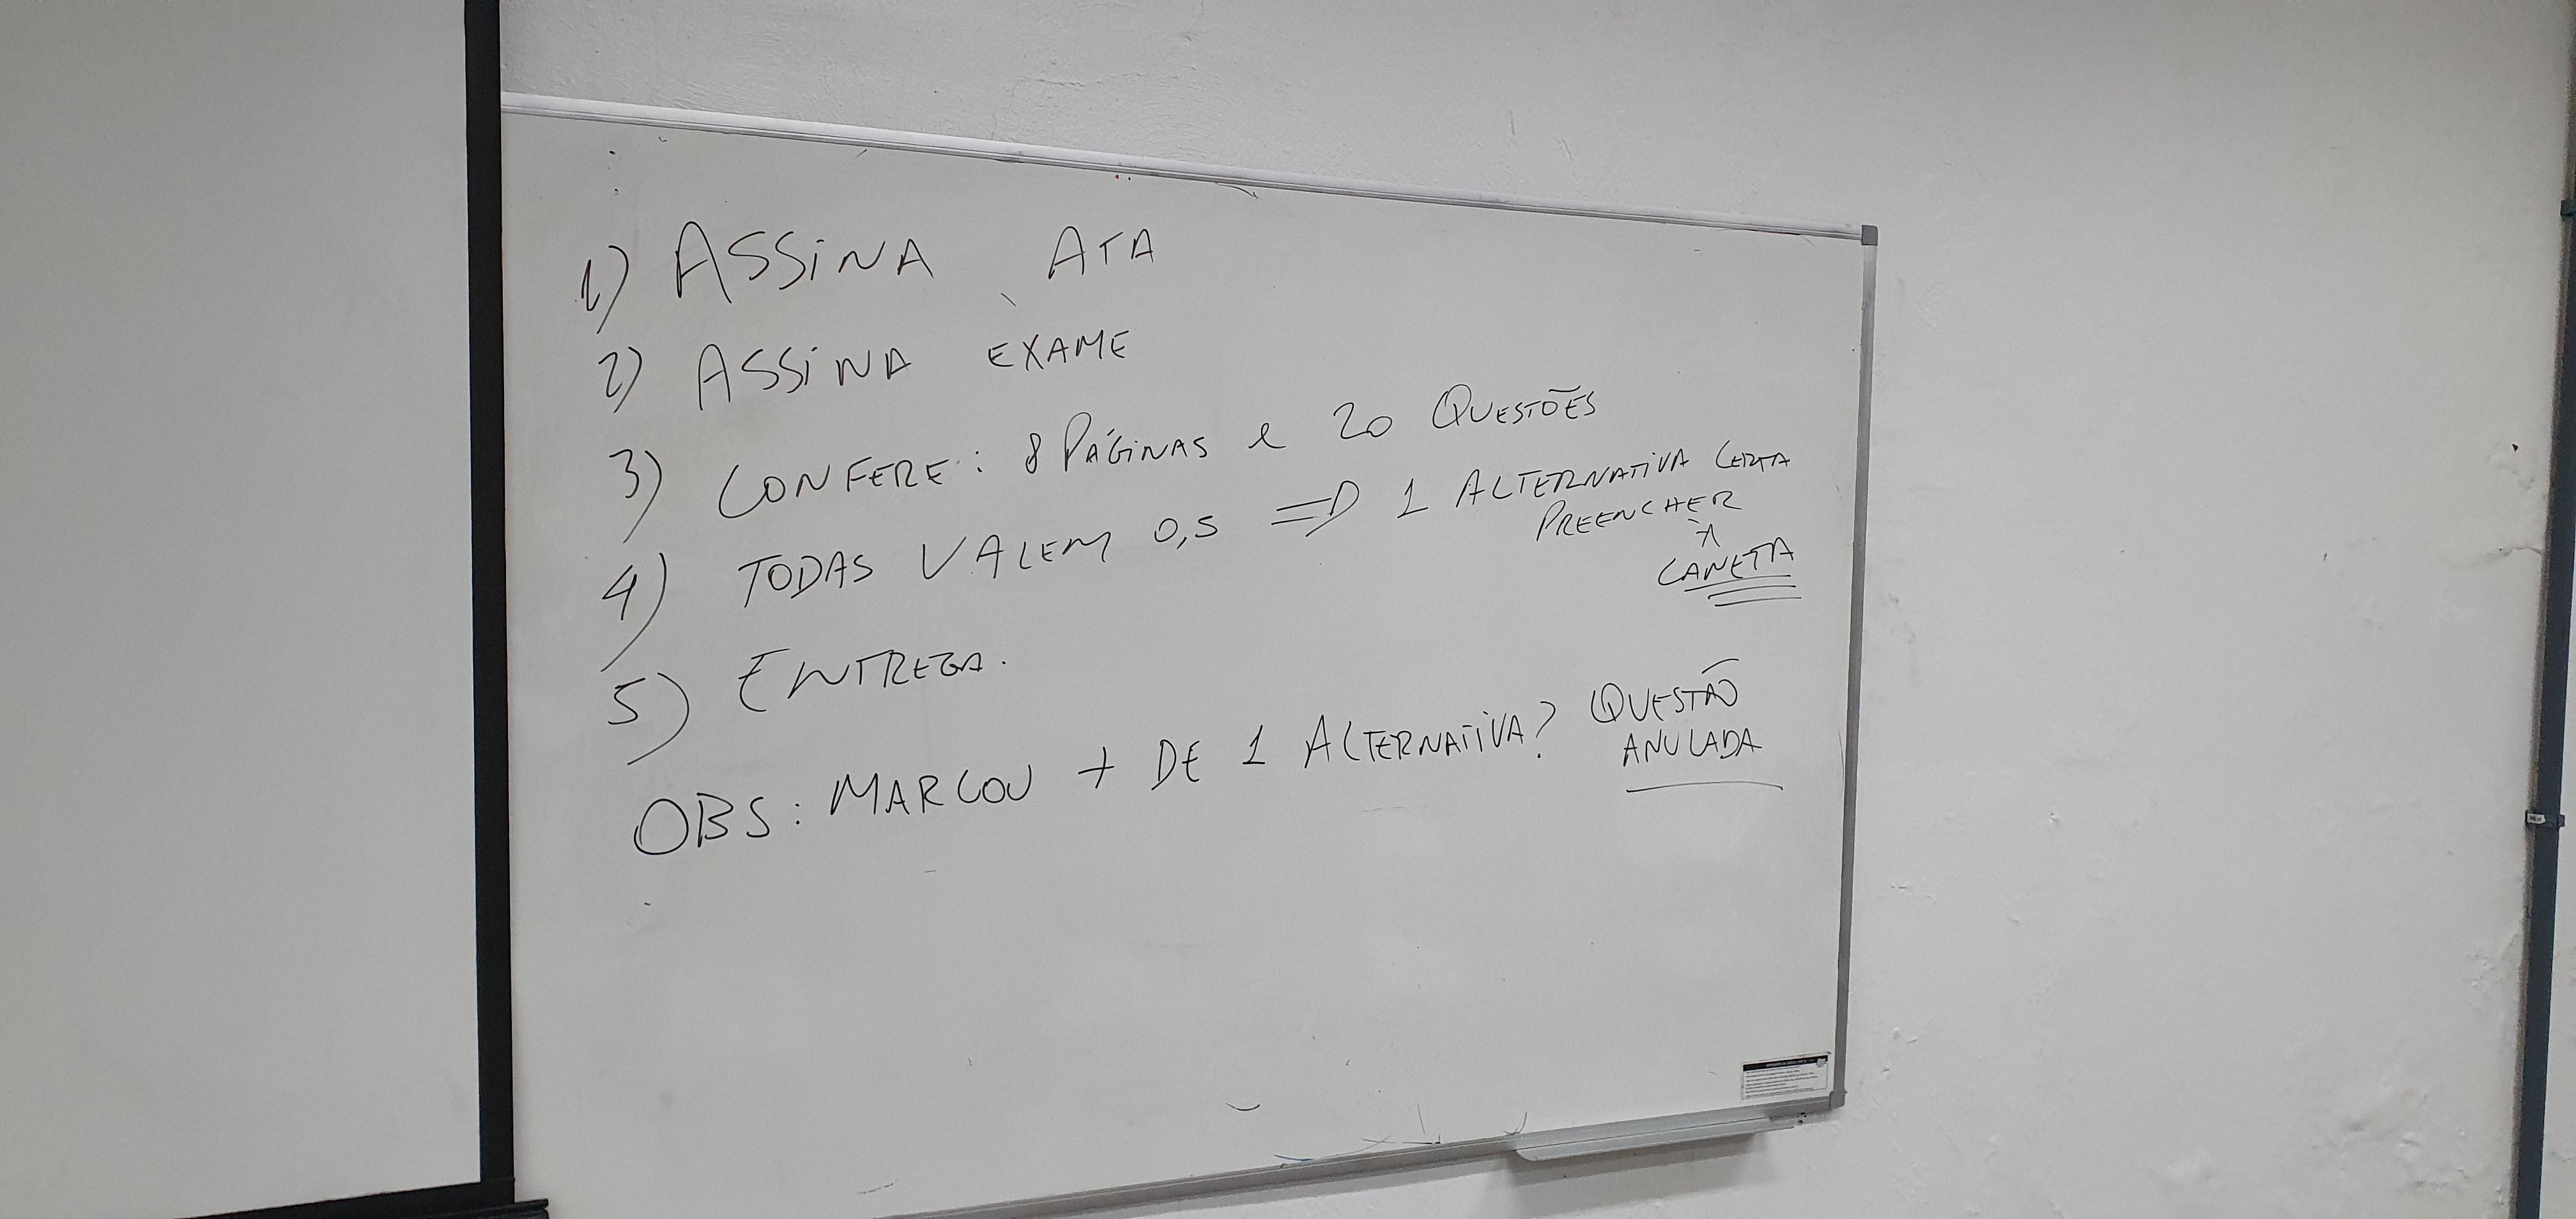 1) ASSINA ATA
2) ASSINA EXAME
3) CONFERE: 8 PÁGINAS e 20 QUESTÕES
4) TODAS VALEM 0,5 => 1 ALTERNATIVA CERTA
PREENCHER
À
CANETA
5) ENTREGA.
OBS: MARCOU + DE 1 ALTERNATIVA? QUESTÃO
ANULADA